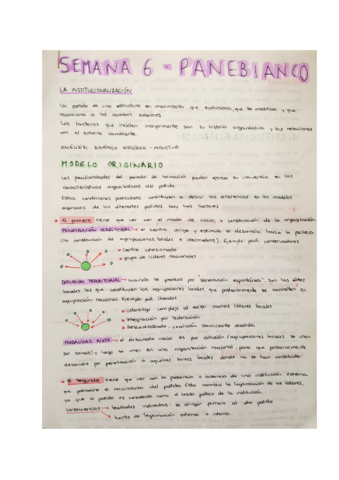 SEMANA 6 - PANEBIANCO
LA INSTITUCIONALIZACIÓN
Un partido es una estructura en movimiento que evoluciona, que se modifica y que
reacciona a los cambios exteriores.
Los factores que inciden mayormente son su historia organizativa y las relaciones
con el entorno cambiante.
ANÁLISIS: DINÁMICO HISTÓRICO - INDUCTIVA
MODELO ORIGINARIO
Las peculiaridades del periodo de formación pueden ejercer su influencia en las
características organizativas del partido.
Estas condiciones particulares contribuyen a definir las diferencias en los modelos
originarios de los diferentes partidos son tres factores
El primero tiene que ver con el modo de inicio y construcción de la organización
PENETRACIÓN TERRITORIAL → el centro dirige y estimula el desarrollo hacia la periferia
(la constitución de agrupaciones locales e intermedias). Ejemplo: part. conservadores
Centro cohesionado
grupo de líderes nacionales
DIFUSIÓN TERRITORIAL → cuando se produce por "generación espontánea". Son las élites
locales las que constituyen las agrupaciones locales que posteriormente se convierten en
agrupación nacional. Ejemplo: part. liberales
Liderazgo complejo al existir muchos líderes locales
Integración por federación
Descentralizado: coalición dominante dividida
MODALIDAD MIXTA → el desarrollo inicial es por difusión (agrupaciones locales se unen
por zonas) y luego se unen en una organización nacional, para que posteriormente
desarrolle por penetración a aquellas zonas locales donde no se han constituido.
El segundo tiene que ver con la presencia o ausencia de una institución externa
que patrocine el nacimiento del partido. Esto cambia la legitimación de los líderes,
ya que el partido es concebido como el brazo político de la institución.
consecuencias → lealtades indirectas: se dirigen primero al otro partido
→ fuente de legitimación externa o interna